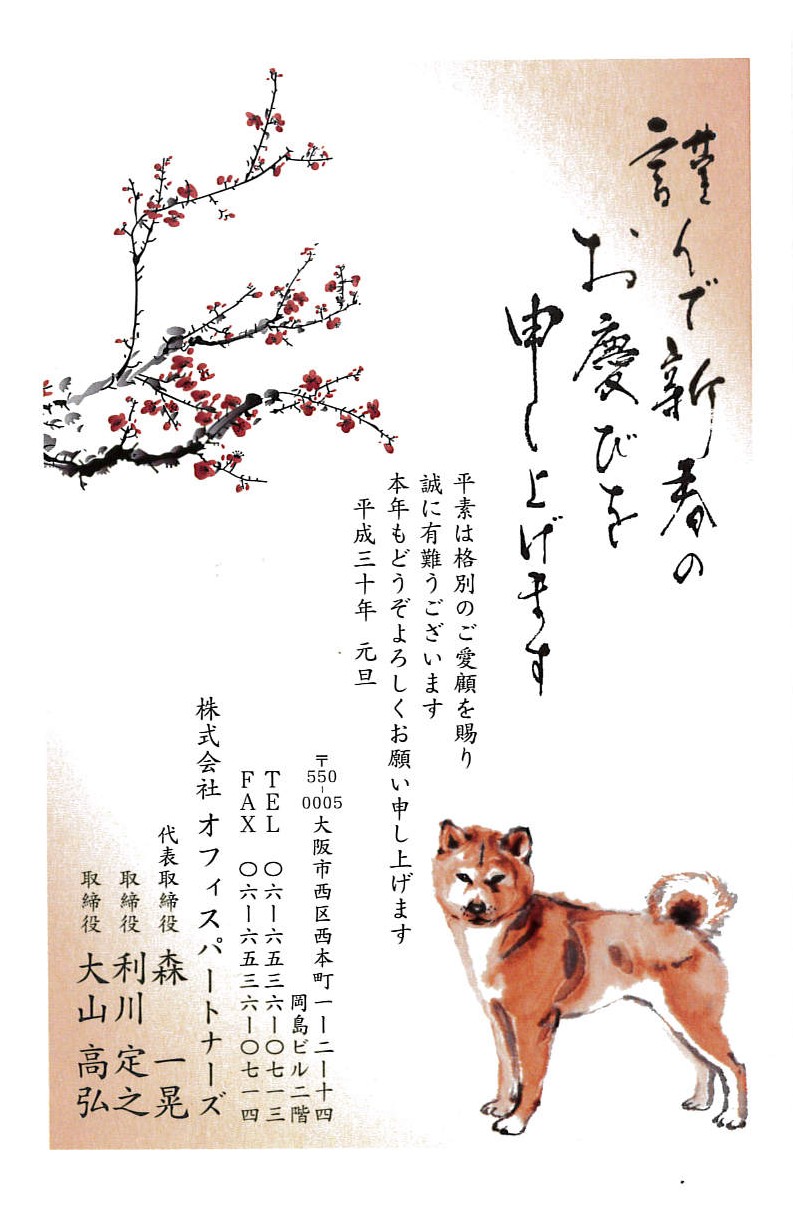 謹んで新春の
お慶びを
申し上げます
平素は格別のご愛顧を賜り
誠に有難うございます
本年もどうぞよろしくお願い申し上げます
平成三十年 元旦
〒550-0005 大阪市西区西本町一ー二ー十四
岡島ビル二階
TEL 〇六ー六五三六ー〇七一三
FAX 〇六ー六五三六ー〇七一四
株式会社 オフィスパートナーズ
代表取締役 森 一晃
取締役 利川 定之
取締役 大山 高弘